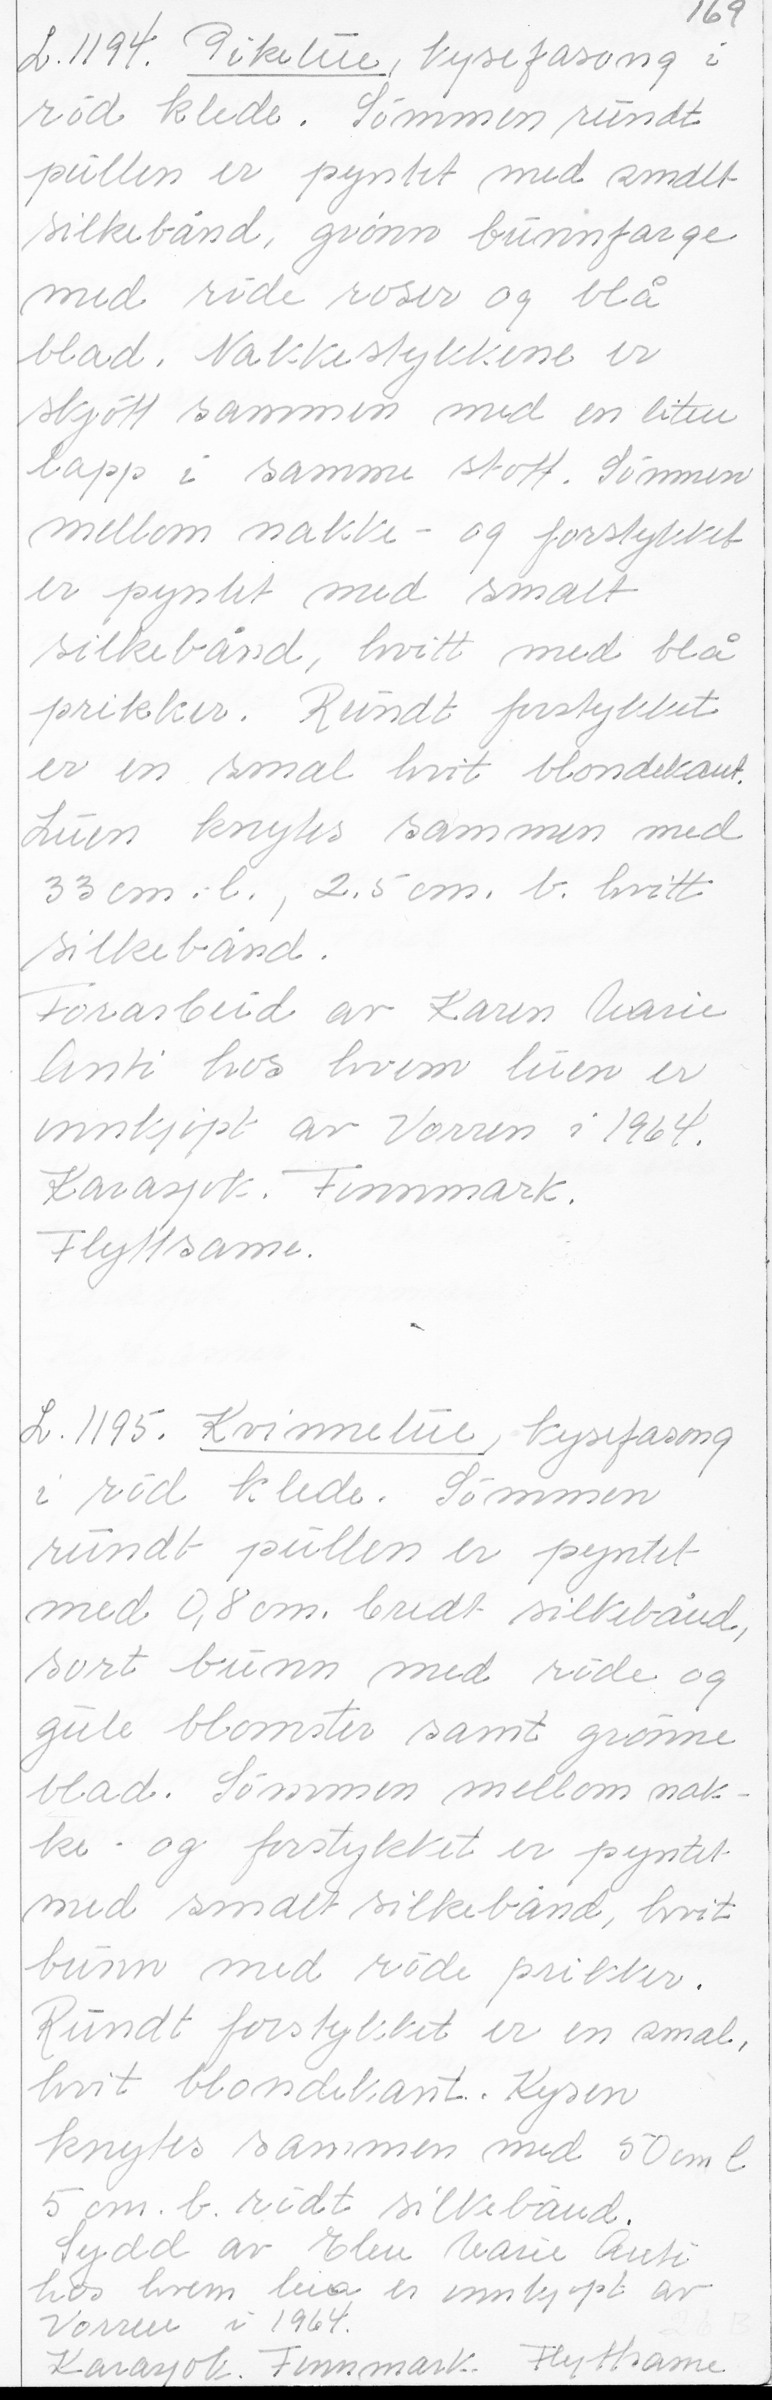 169
L. 1194. Pikelue, kysefasong i
rød klede. Sømmen rundt
pullen er pyntet med smalt
silkebånd, grønn bunnfarge
med røde roser og blå
blad. Nakkestykkene er
skjøtt sammen med en liten
lapp i samme stoff. Sømmen
mellom nakke- og forstykket
er pyntet med smalt
silkebånd, hvitt med blå
prikker. Rundt forstykket
er en smal hvit blondekant.
Luen knytes sammen med
33 cm. l., 2.5 cm. b. hvitt
silkebånd.
Forarbeid av Karen Marie
Anti hos hvem luen er
innkjøpt av Vorren i 1964.
Karasjok. Finnmark.
Flyttsame.
L. 1195. Kvinnelue, kysefasong
i rød klede. Sømmen
rundt pullen er pyntet
med 0,8 cm. bredt silkebånd,
sort bunn med røde og
gule blomster samt grønne
blad. Sømmen mellom nak-
ke- og forstykket er pyntet
med smalt silkebånd, hvit
bunn med røde prikker.
Rundt forstykket er en smal,
hvit blondekant. Kysen
knytes sammen med 50 cm l
5 cm. b. rødt silkebånd.
Sydd av Ellen Marie Anti
hos hvem lua er innkjøpt av
Vorren i 1964.
Karasjok. Finnmark. Flyttsame